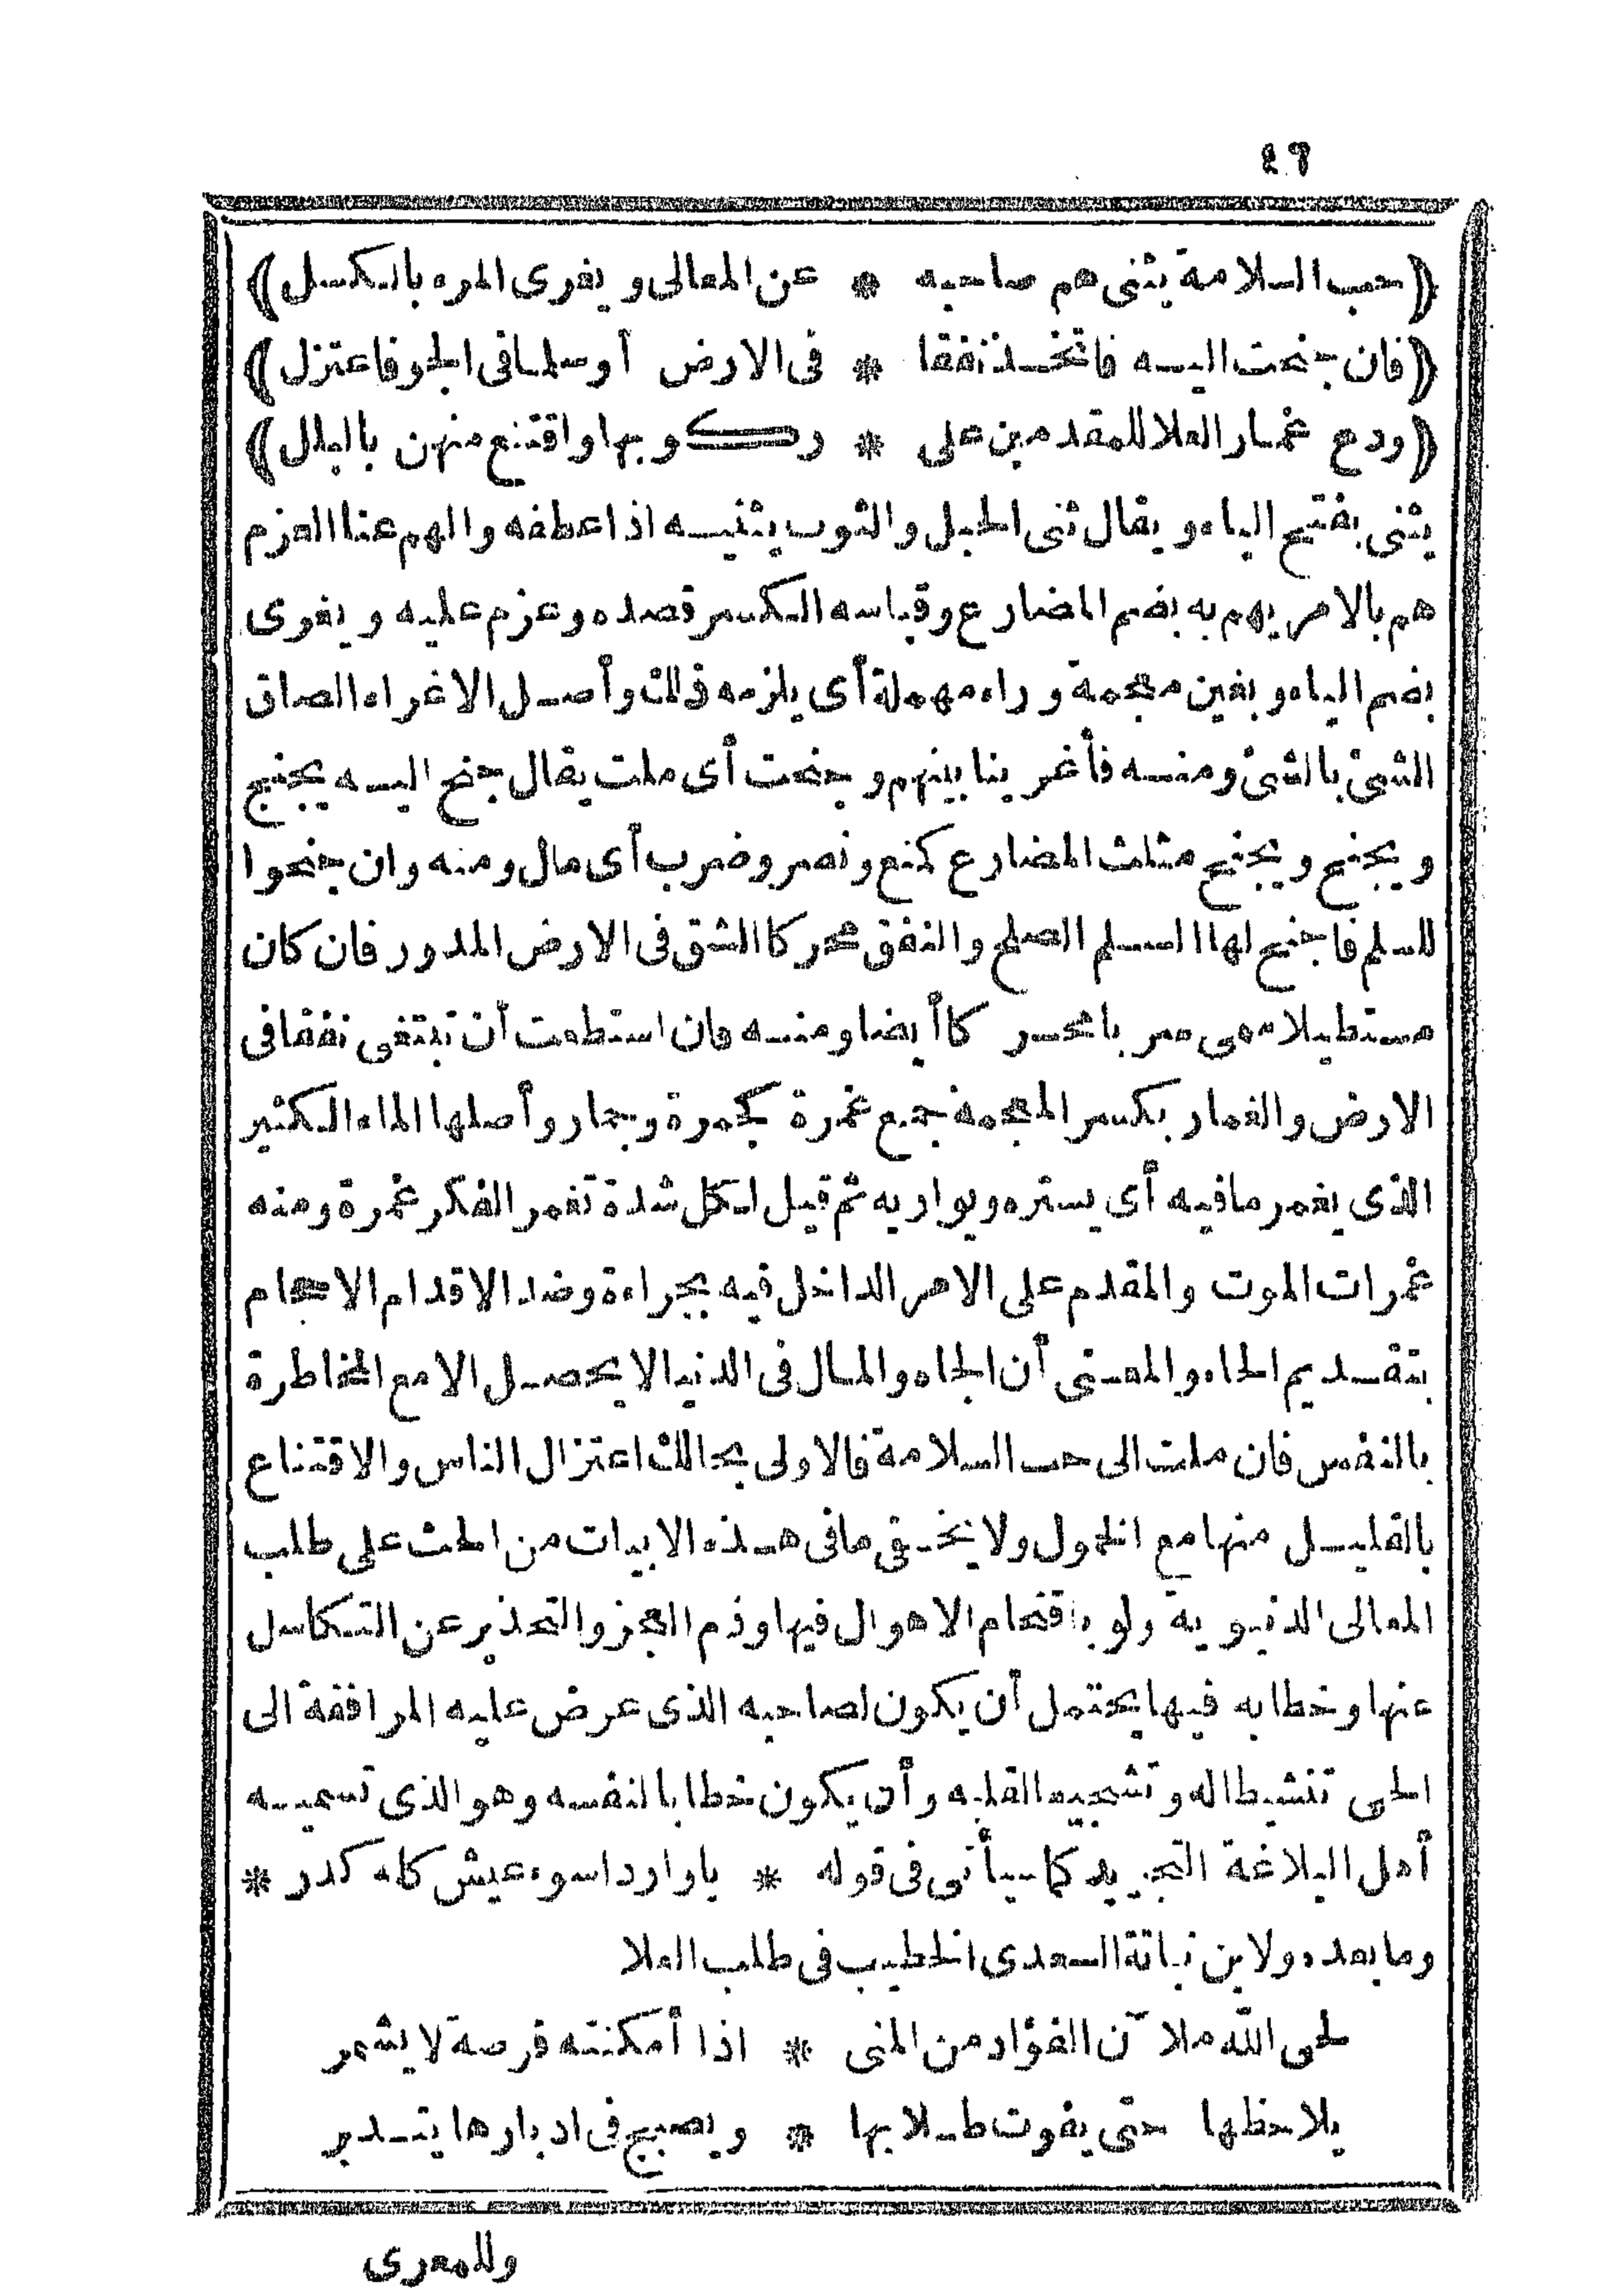 ٤٦
﴿حب السلامة يثنى هم صاحبه * عن المعالى ويغرى المرء بالكسل﴾
﴿فان جنحت اليه فاتخذ نفقا * فى الارض أو سلما فى الجو فاعتزل﴾
﴿ودع غمار العلا للمقدمين على * ركوبها واقتنع منهن بالبلل﴾
يثنى بفتح الياء ويقال ثنى الحبل والثوب يثنيه اذا عطفه والهم هنا العزم
هم بالامر يهم به بضم المضارع وقياسه الكسر قصده وعزم عليه ويغرى
بضم الياء وبغين معجمة وراء مهملة أى يلزمه ذلك وأصل الاغراء الصاق
الشئ بالشئ ومنه فأغرينا بينهم وجنحت أى ملت يقال جنح اليه يجنح
ويجنح ويجنح مثلث المضارع كمنع ونصر وضرب أى مال ومنه وان جنحوا
للسلم فاجنح لها السلم الصلح والنفق محركا الشق فى الارض المدور فان كان
مستطيلا سمى سربا محركا أيضا ومنه فان استطعت أن تبتغى نفقا فى
الارض والغمار بكسر المعجمة جمع غمرة كجمرة وجمار وأصلها الماء الكثير
الذى يغمر ما فيه أى يستره ويواريه ثم قيل لكل شدة تغمر الفكر غمرة ومنه
غمرات الموت والمقدم على الامر الداخل فيه بجراءة وضد الاقدام الاحجام
بتقديم الحاء والمعنى أن الجاه والمال فى الدنيا لا يحصل الا مع المخاطرة
بالنفس فان ملت الى حب السلامة فالاولى بحالك اعتزال الناس والاقتناع
بالقليل منها مع الخمول ولا يخفى ما فى هذه الابيات من الحث على طلب
المعالى الدنيوية ولو باقتحام الاهوال فيها وذم العجز والتحذير عن التكاسل
عنها وخطابه فيها يحتمل أن يكون لصاحبه الذى عرض عليه المرافقة الى
الحى تنشيطا له وتشجيعا لقلبه وأن يكون خطابا لنفسه وهو الذى تسميه
أهل البلاغة التجريد كما سيأتى فى قوله * ياواردا سوء عيش كله كدر *
وما بعده ولابن نباتة السعدى الخطيب فى طلب العلا
لحى الله ملآن الفؤاد من المنى * اذا أمكنته فرصة لا يشمر
يلاحظها حتى يفوت طلابها * ويصبح فى ادبارها يتدبر
وللمعرى